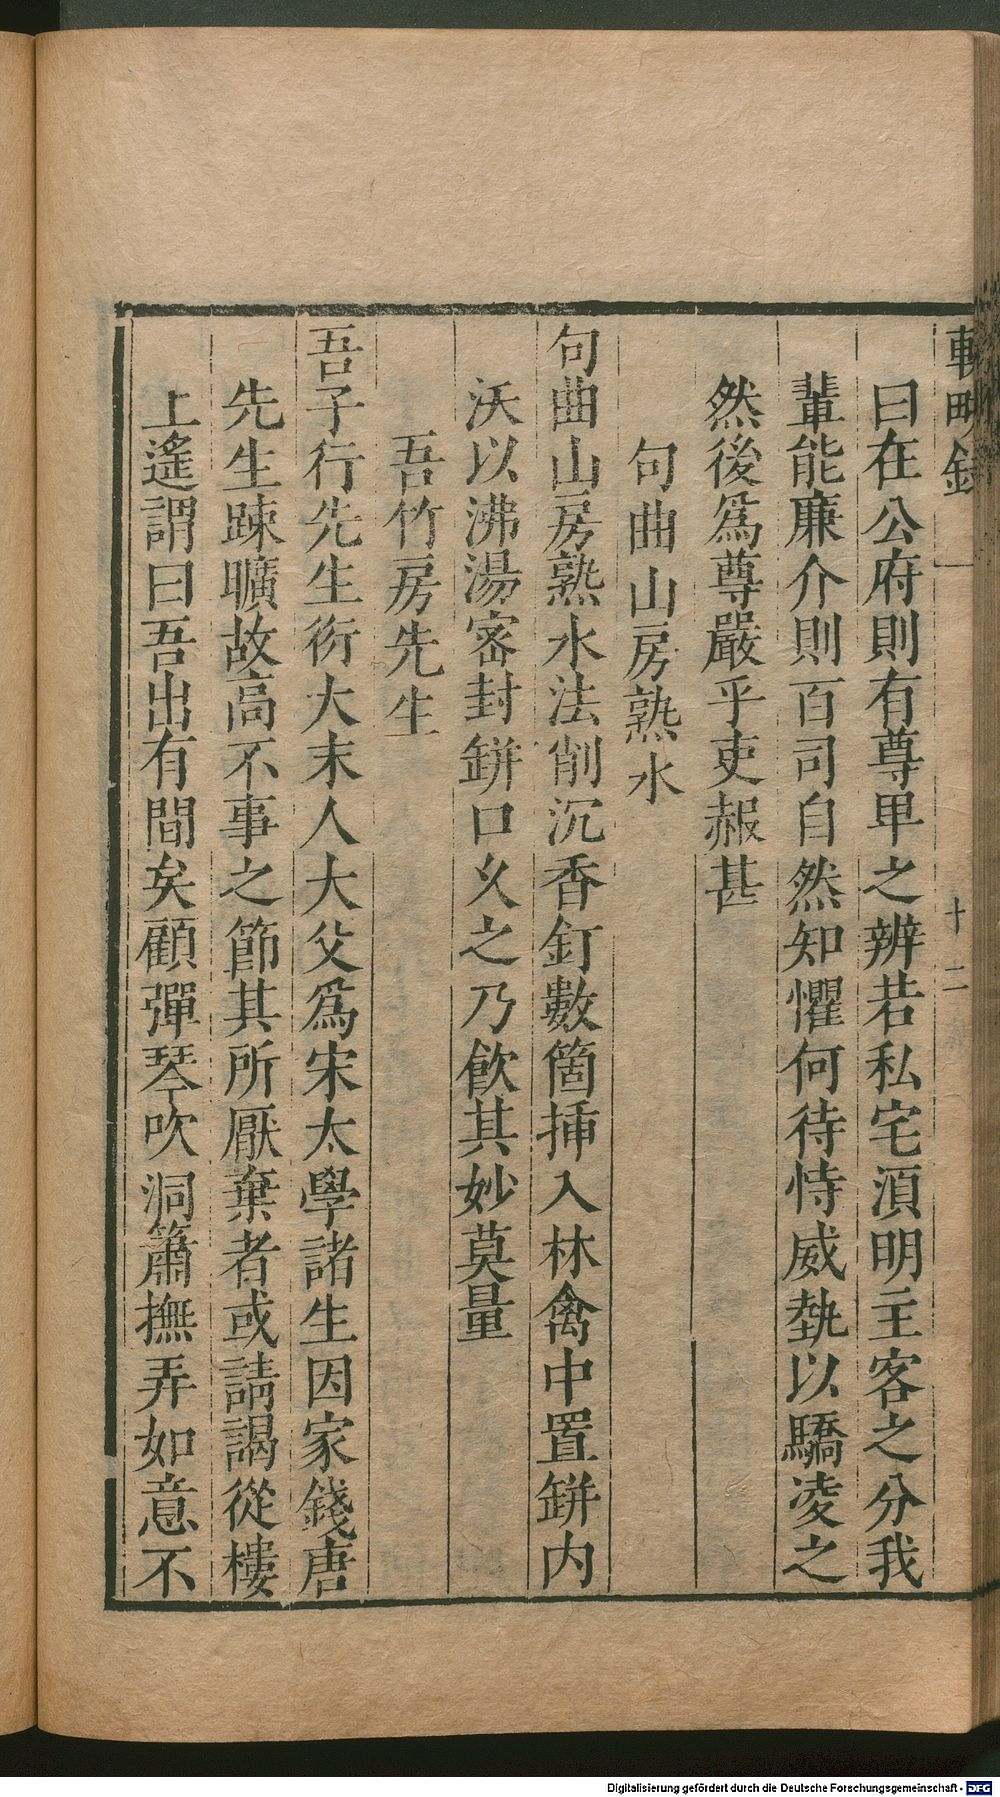 輟畊錄 一 十二
曰在公府則有尊𤰞之辨若私宅湏明主客之分我
輩能廉介則百司自然知懼何待恃威埶以驕凌之
然後爲尊嚴乎吏赧甚
句曲山房熟水
句曲山房熟水法削沉香釘數箇揷入林禽中置缾內
沃以沸湯宻封缾口乆之乃飮其妙莫量
吾竹房先生
吾子行先生衍大末人大父爲宋太學諸生因家錢唐
先生踈曠故高不事之節其所厭棄者或請謁從樓
上遙謂曰吾出有間矣顧彈琴吹洞簫撫弄如意不
Digitalisierung gefördert durch die Deutsche Forschungsgemeinschaft - DFG